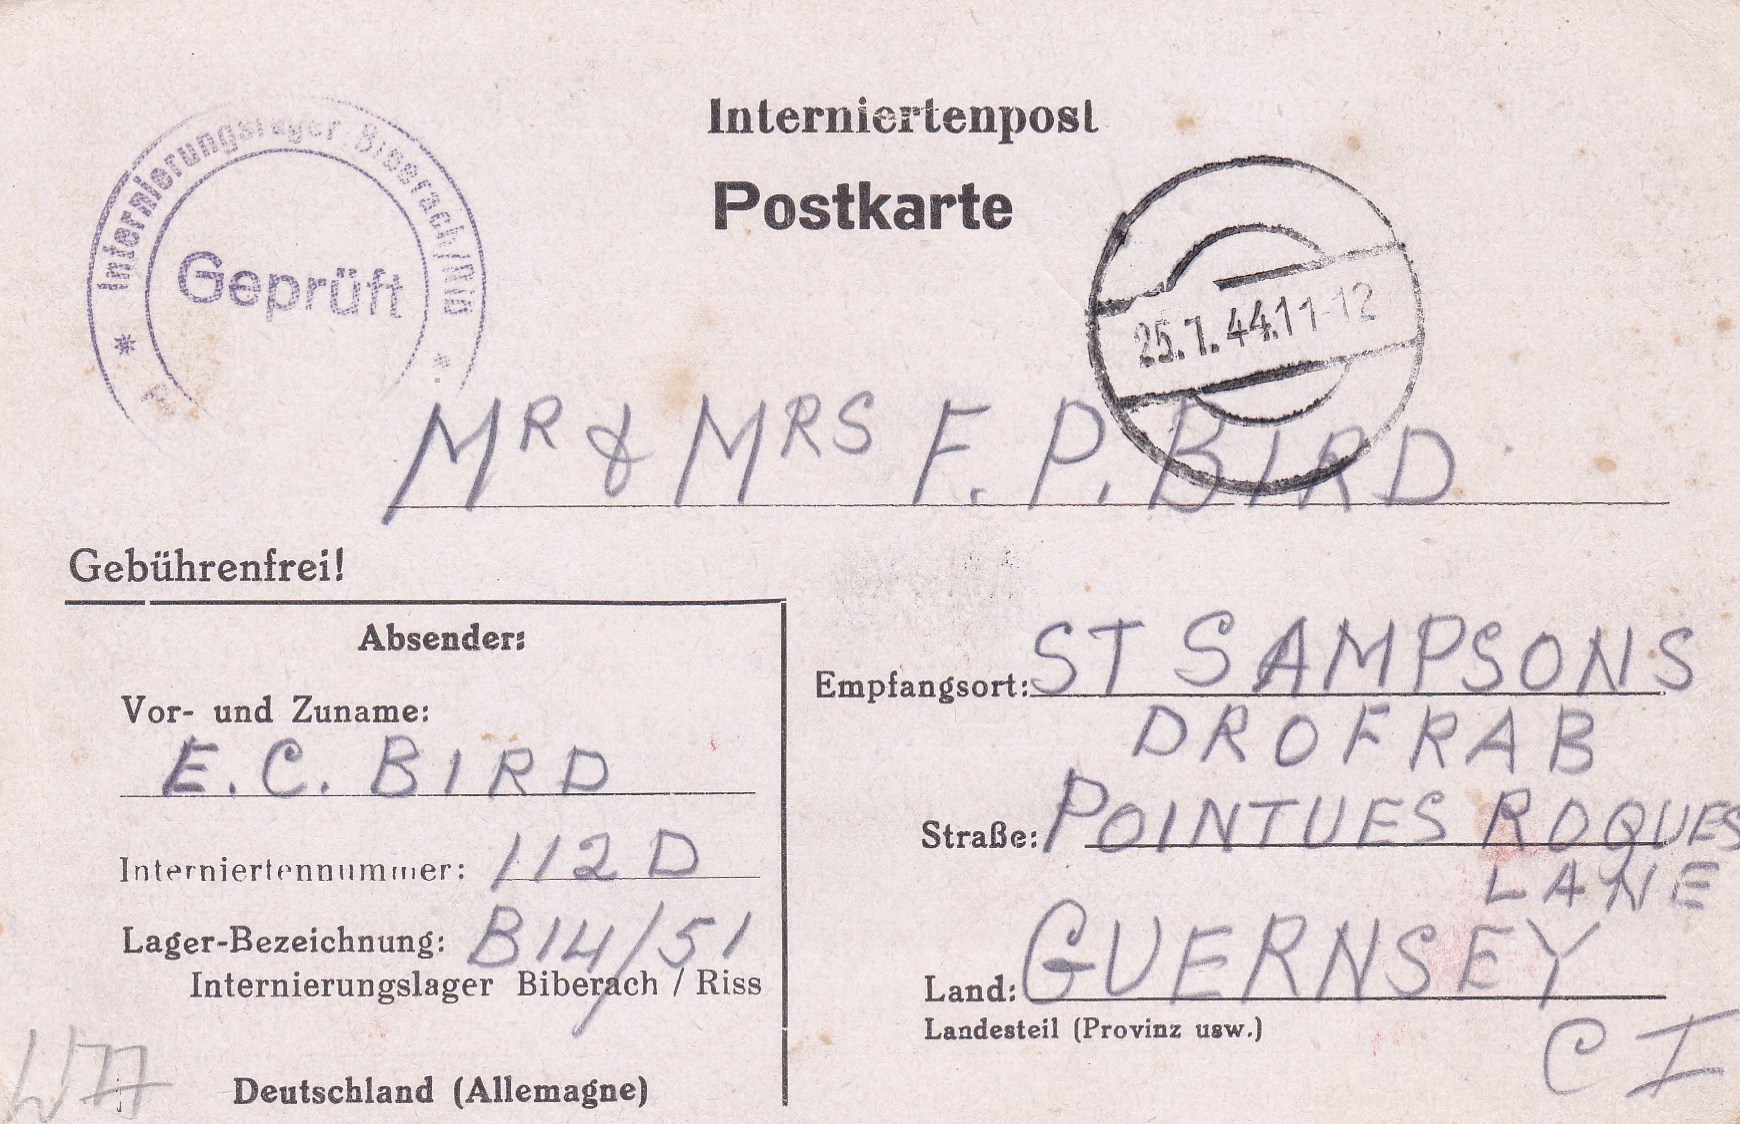 Interniertenpost
Postkarte
Internierungslager Biberach/Riß
Geprüft
25.7.44.11-12
MR & MRS F. P. BIRD
Gebührenfrei!
Absender:
Vor- und Zuname:
E. C. BIRD
Interniertennummer: 112 D
Lager-Bezeichnung: B14/51
Internierungslager Biberach / Riss
Deutschland (Allemagne)
Empfangsort: ST SAMPSONS
DROFRAB
Straße: POINTUES ROQUES
LANE
Land: GUERNSEY
Landesteil (Provinz usw.)
C I